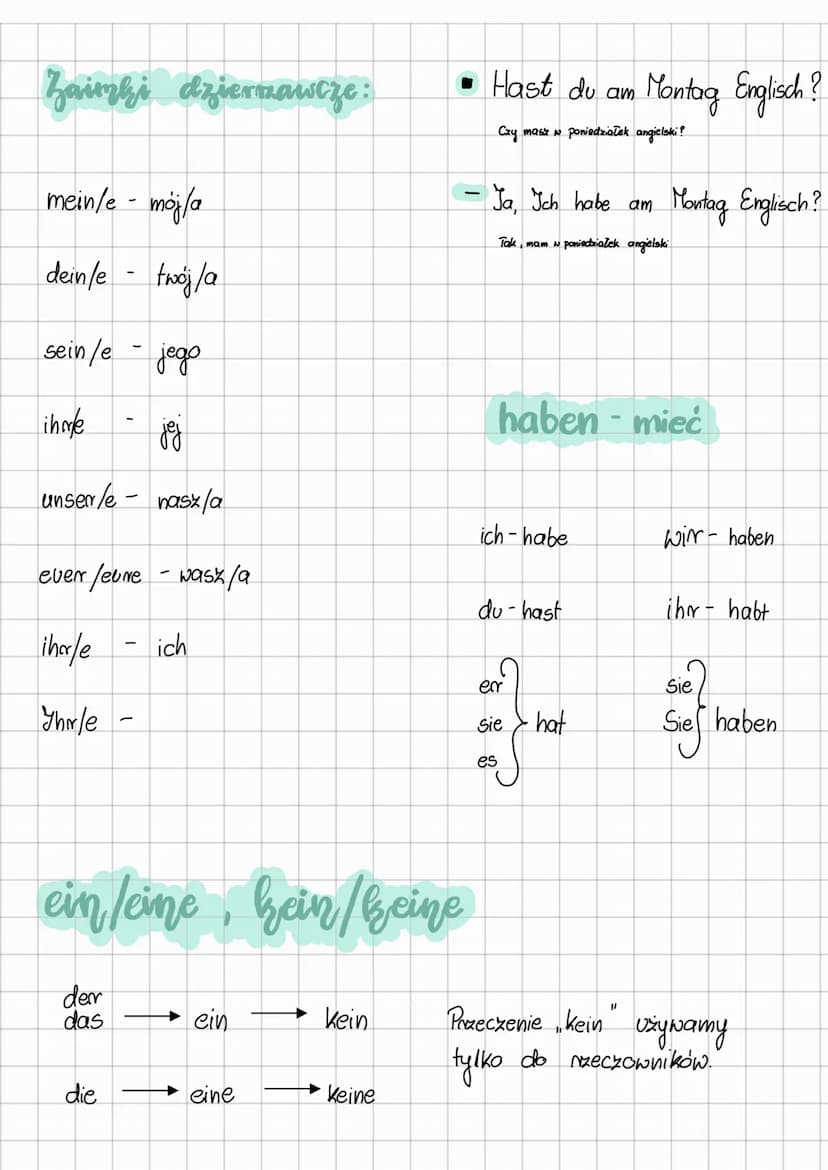 Zaimki dzierżawcze:
mein/e - mój/a
dein/e - twój/a
sein/e - jego
ihr/e - jej
unser/e - nasz/a
euer/eure - wasz/a
ihr/e - ich
Ihr/e -
▪ Hast du am Montag Englisch?
Czy masz w poniedziałek angielski?
- Ja, Ich habe am Montag Englisch?
Tak, mam w poniedziałek angielski
haben - mieć
ich - habe
du - hast
er
sie } hat
es
wir - haben
ihr - habt
sie
Sie } haben
ein/eine, kein/keine
der
das → ein → kein
die → eine → keine
Przeczenie „kein" używamy
tylko do rzeczowników.